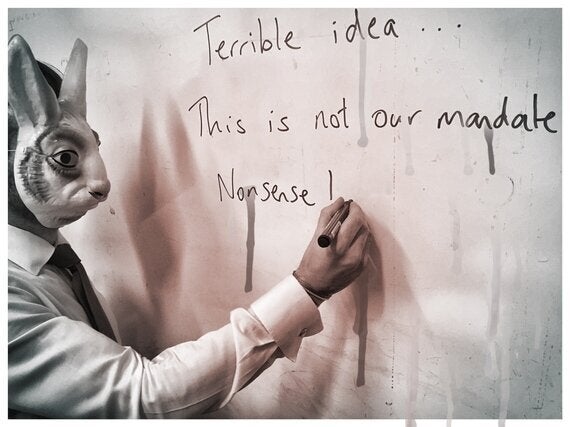 Terrible idea ...
This is not our mandate
Nonsense !